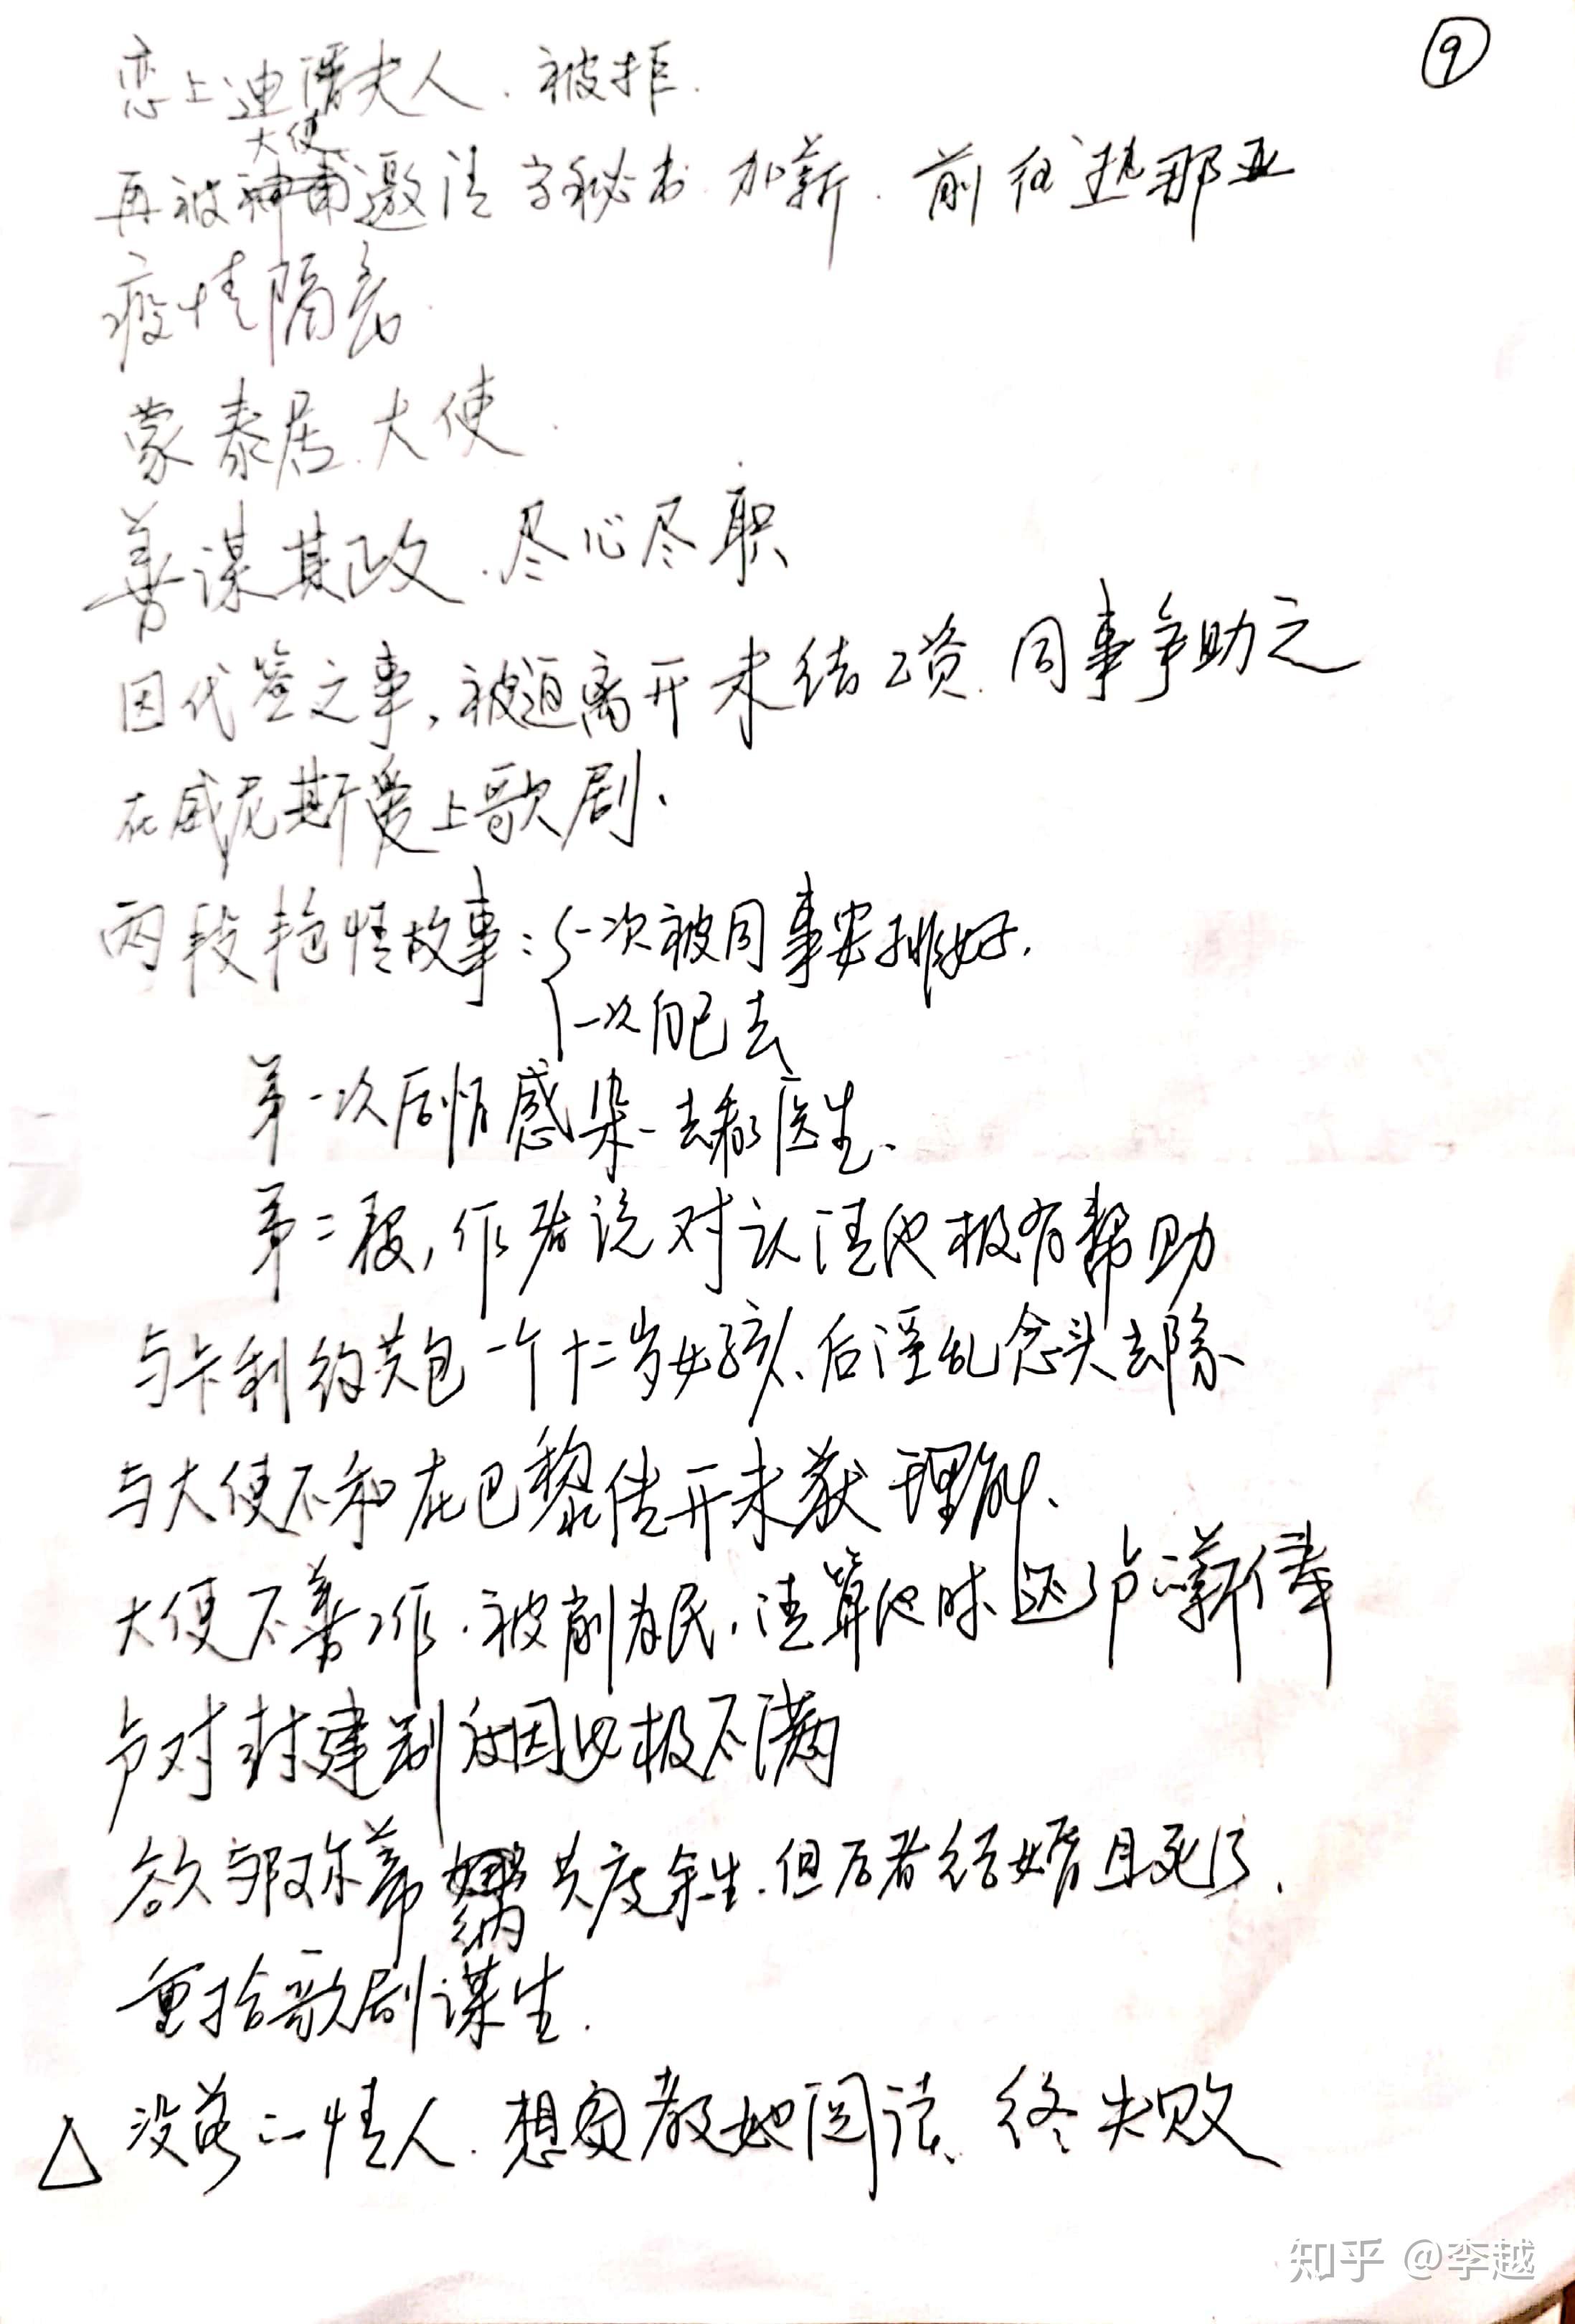 ⑨
恋上迪潘夫人.被拒.
大使
再被邀请字秘书 加薪.前往热那亚
疫情隔离.
蒙泰居.大使.
善谋其政.尽心尽职
因代签之事,被迫离开未结工资.同事争助之
在威尼斯爱上歌剧.
两段艳情故事:一次被同事安排好.
一次自己去
第一次后怕感染-去看医生.
第二段,作者说对认清他极有帮助
与卡利约共包一个十二岁女孩.后淫乱念头去除
与大使不和在巴黎传开未获理解.
大使不善工作.被削为民.清算他时还了卢之薪俸
卢对封建制度因此极不满
欲与耶尔蒂纳共度余生.但后者结婚且死了.
重拾歌剧谋生.
△ 没落之情人.想图教她阅读.终失败
知乎 @李越